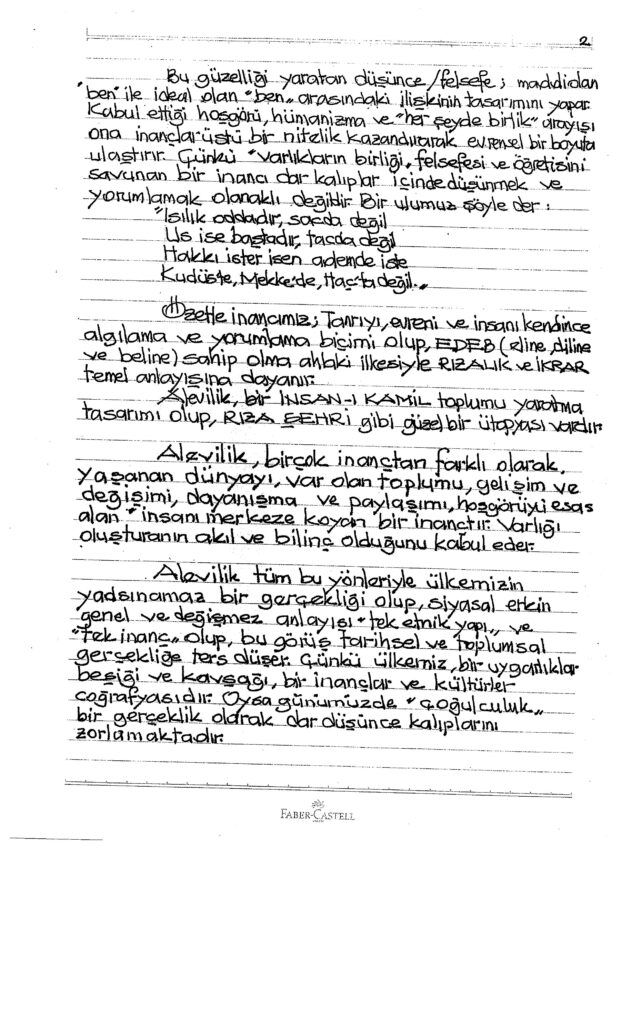 2
Bu güzelliği yaratan düşünce/felsefe; maddi olan
"ben" ile ideal olan "ben" arasındaki ilişkinin tasarımını yapar.
Kabul ettiği hoşgörü, hümanizma ve "her şeyde birlik" arayışı
ona inançlarüstü bir nitelik kazandırarak evrensel bir boyuta
ulaştırır. Çünkü "varlıkların birliği" felsefesi ve öğretisini
savunan bir inancı dar kalıplar içinde düşünmek ve
yorumlamak olanaklı değildir. Bir ulumuz şöyle der:
"Isılık oddadır, sacda değil
Us ise baştadır, tacda değil
Hakkı ister isen ademde iste
Kudüste, Mekke'de, Hac'ta değil."
Özetle inancımız; Tanrıyı, evreni ve insanı kendince
algılama ve yorumlama biçimi olup, EDEB (eline, diline
ve beline) sahip olma ahlaki ilkesiyle RIZALIK ve İKRAR
temel anlayışına dayanır.
Alevilik, bir İNSAN-I KAMİL toplumu yaratma
tasarımı olup, RIZA ŞEHRİ gibi güzel bir ütopyası vardır.
Alevilik, birçok inançtan farklı olarak,
yaşanan dünyayı, var olan toplumu, gelişim ve
değişimi, dayanışma ve paylaşımı, hoşgörüyü esas
alan "insanı merkeze koyan bir inançtır. Varlığı
oluşturanın akıl ve bilinç olduğunu kabul eder.
Alevilik tüm bu yönleriyle ülkemizin
yadsınamaz bir gerçekliği olup, siyasal erkin
genel ve değişmez anlayışı "tek etnik yapı" ve
"tek inanç" olup, bu görüş tarihsel ve toplumsal
gerçekliğe ters düşer. Çünkü ülkemiz, bir uygarlıklar
beşiği ve kavşağı, bir inançlar ve kültürler
coğrafyasıdır. Oysa günümüzde "çoğulculuk"
bir gerçeklik olarak dar düşünce kalıplarını
zorlamaktadır.
FABER-CASTELL